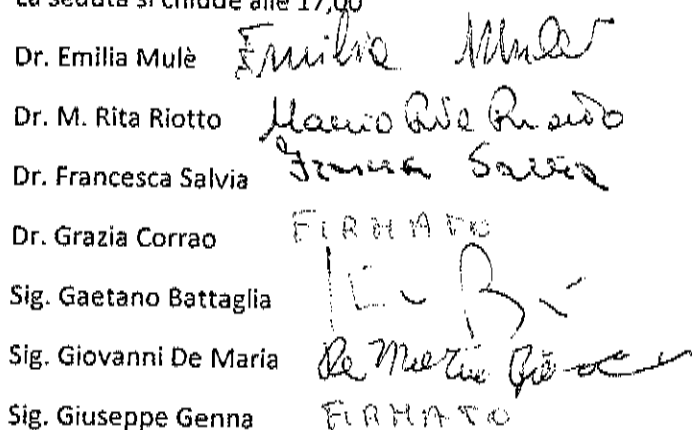 La seduta si chiude alle 17,00
Dr. Emilia Mulè Emilia Mulè
Dr. M. Rita Riotto Maria Rita
Dr. Francesca Salvia Salvia
Dr. Grazia Corrao FIRMATO
Sig. Gaetano Battaglia
Sig. Giovanni De Maria De Maria
Sig. Giuseppe Genna FIRMATO